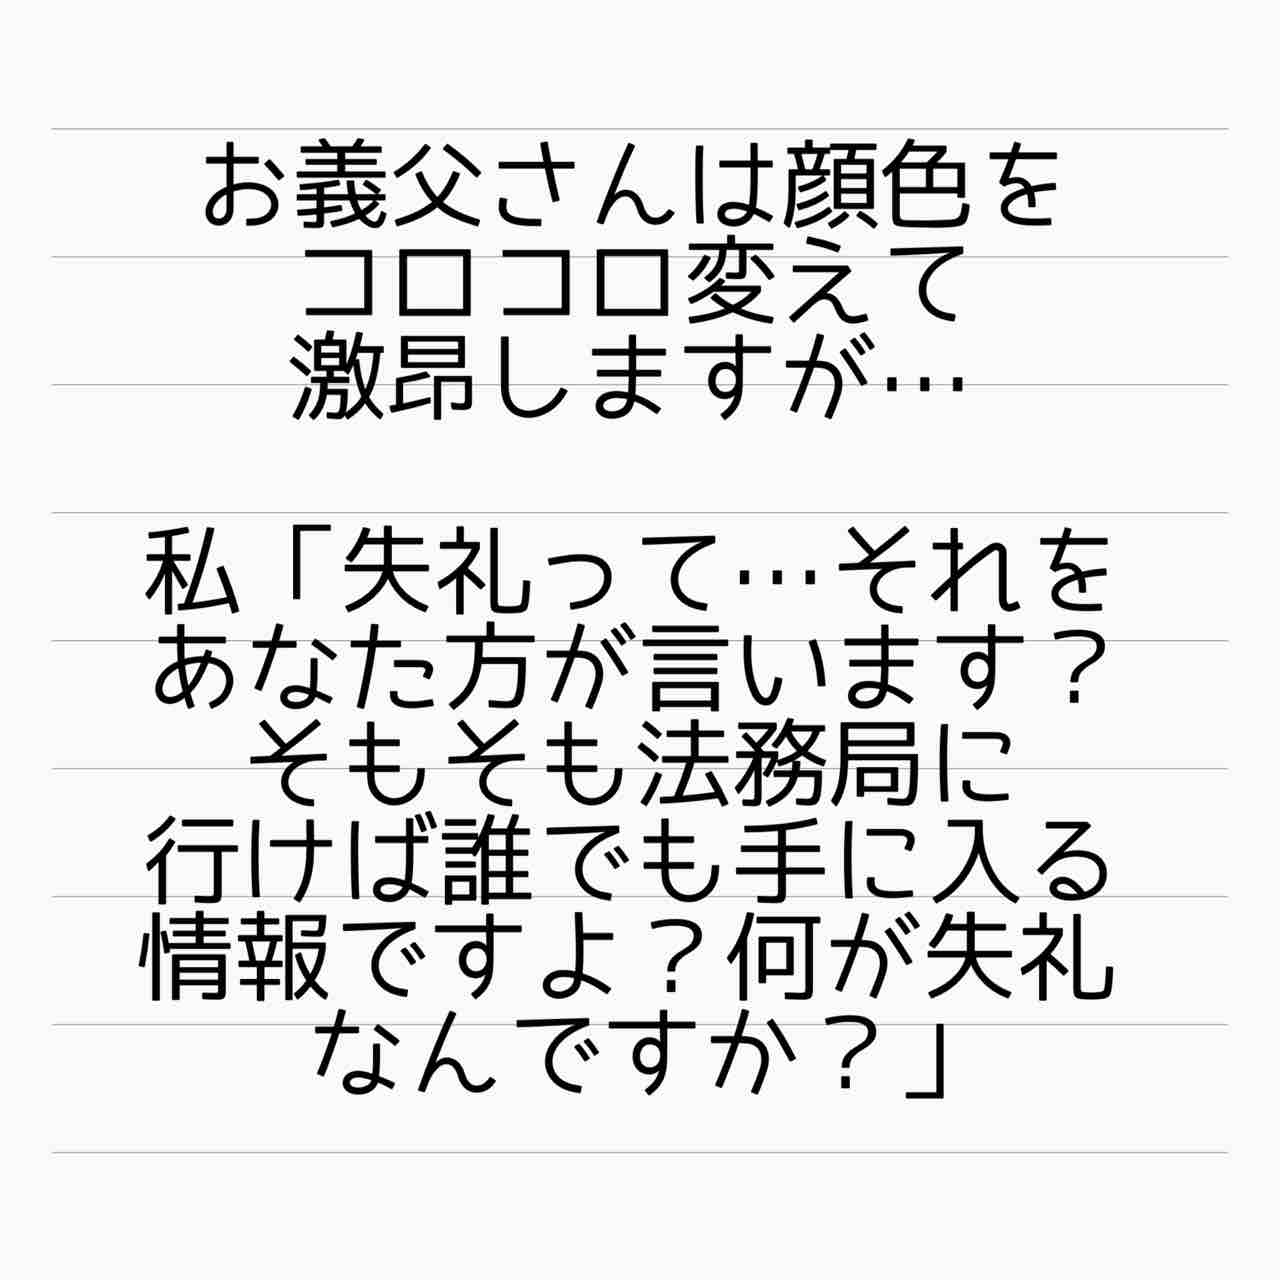 お義父さんは顔色を
コロコロ変えて
激昂しますが…
私「失礼って…それを
あなた方が言います？
そもそも法務局に
行けば誰でも手に入る
情報ですよ？何が失礼
なんですか？」